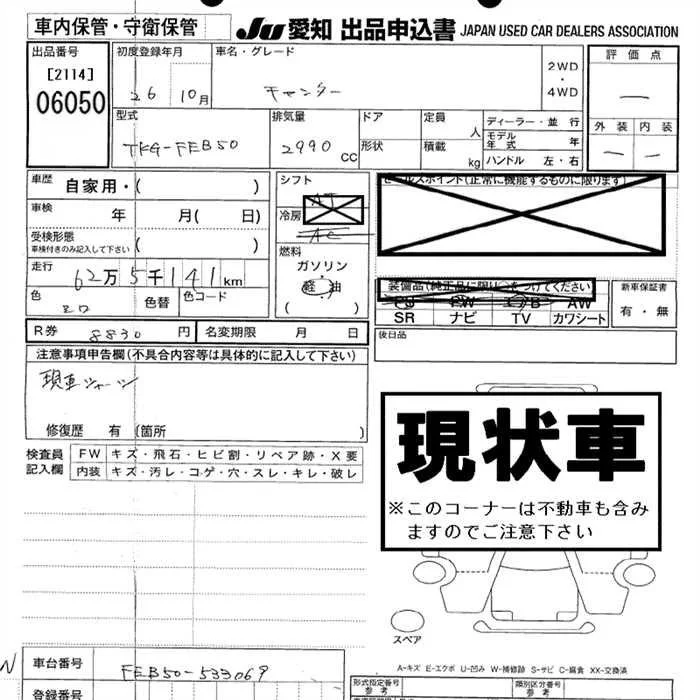 車内保管・守衛保管
JU 愛知 出品申込書 JAPAN USED CAR DEALERS ASSOCIATION
出品番号
[2114]
06050
初度登録年月
26 10月
車名・グレード
キャンター
2WD
・
4WD
評価点
—
外装 内装
— —
型式
TKG-FEB50
排気量
2990 CC
ドア
形状
定員 人
積載 kg
ディーラー・並行
モデル年式 年
ハンドル 左・右
車歴 自家用・( )
車検 年 月( 日)
受検形態
車検付きのみ記入して下さい ( )
走行 62万5千141km
色
色替
色コード
シフト
AT
冷房
AC
燃料
ガソリン・
軽油
( )
セールスポイント(正常に機能するものに限ります)
装備品(純正品に限り○をつけてください)
PS PW エアB AW
SR ナビ TV カワシート
新車保証書
有・無
R券 8830円 名変期限 月 日
後日品
注意事項申告欄(不具合内容等は具体的に記入して下さい)
現車
修復歴 有 (箇所 )
検査員
記入欄
FW キズ・飛石・ヒビ割・リペア跡・X要
内装 キズ・汚レ・コゲ・穴・スレ・キレ・破レ
現状車
※このコーナーは不動車も含み
ますのでご注意下さい
スペア
A-キズ E-エクボ U-凹み W-補修跡 S-サビ C-腐食 XX-交換済
N
車台番号 FEB50-533069
登録番号
形式指定番号
参考
類別区分番号
参考